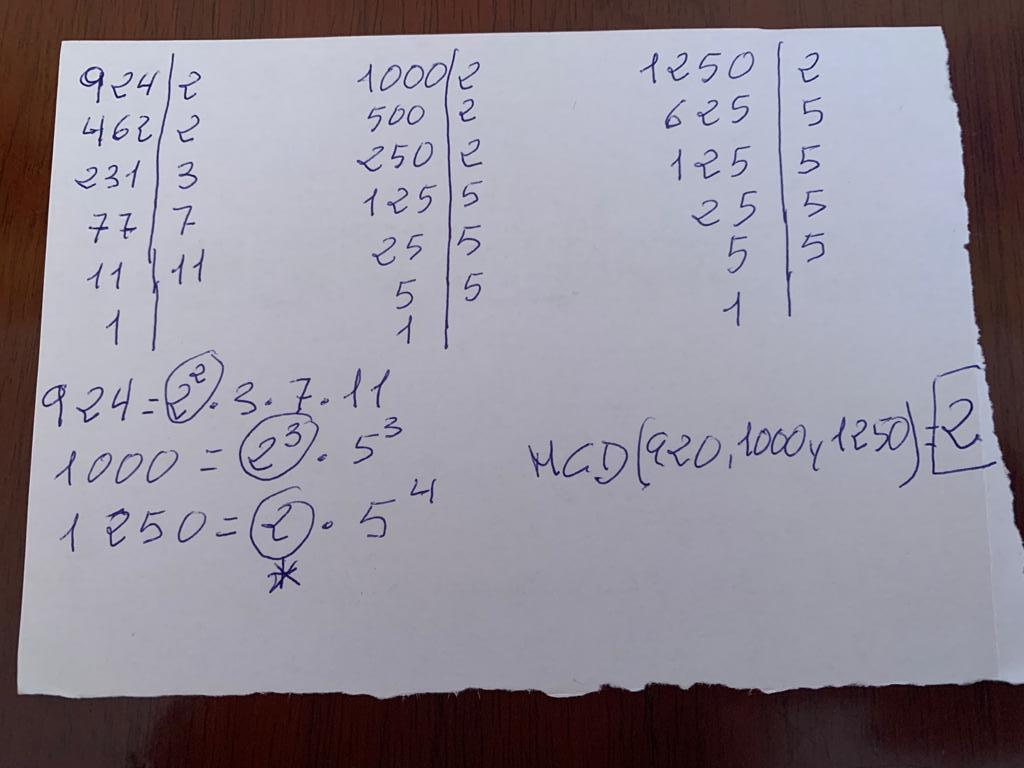 924 | 2
462 | 2
231 | 3
77 | 7
11 | 11
1 |
1000 | 2
500 | 2
250 | 2
125 | 5
25 | 5
5 | 5
1 |
1250 | 2
625 | 5
125 | 5
25 | 5
5 | 5
1 |
924 = 2² · 3 · 7 · 11
1000 = 2³ · 5³
1250 = 2 · 5⁴
*
MCD (920, 1000 y 1250) = 2